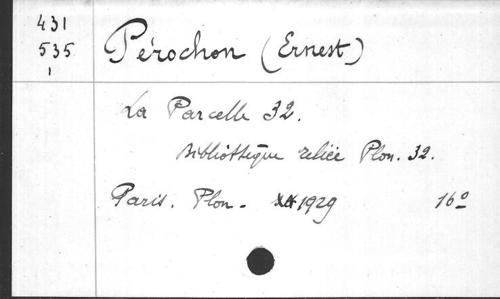 431
535
1
Pérochon (Ernest)
La Parcelle 32.
Bibliothèque reliée Plon. 32.
Paris. Plon - 1929 16º